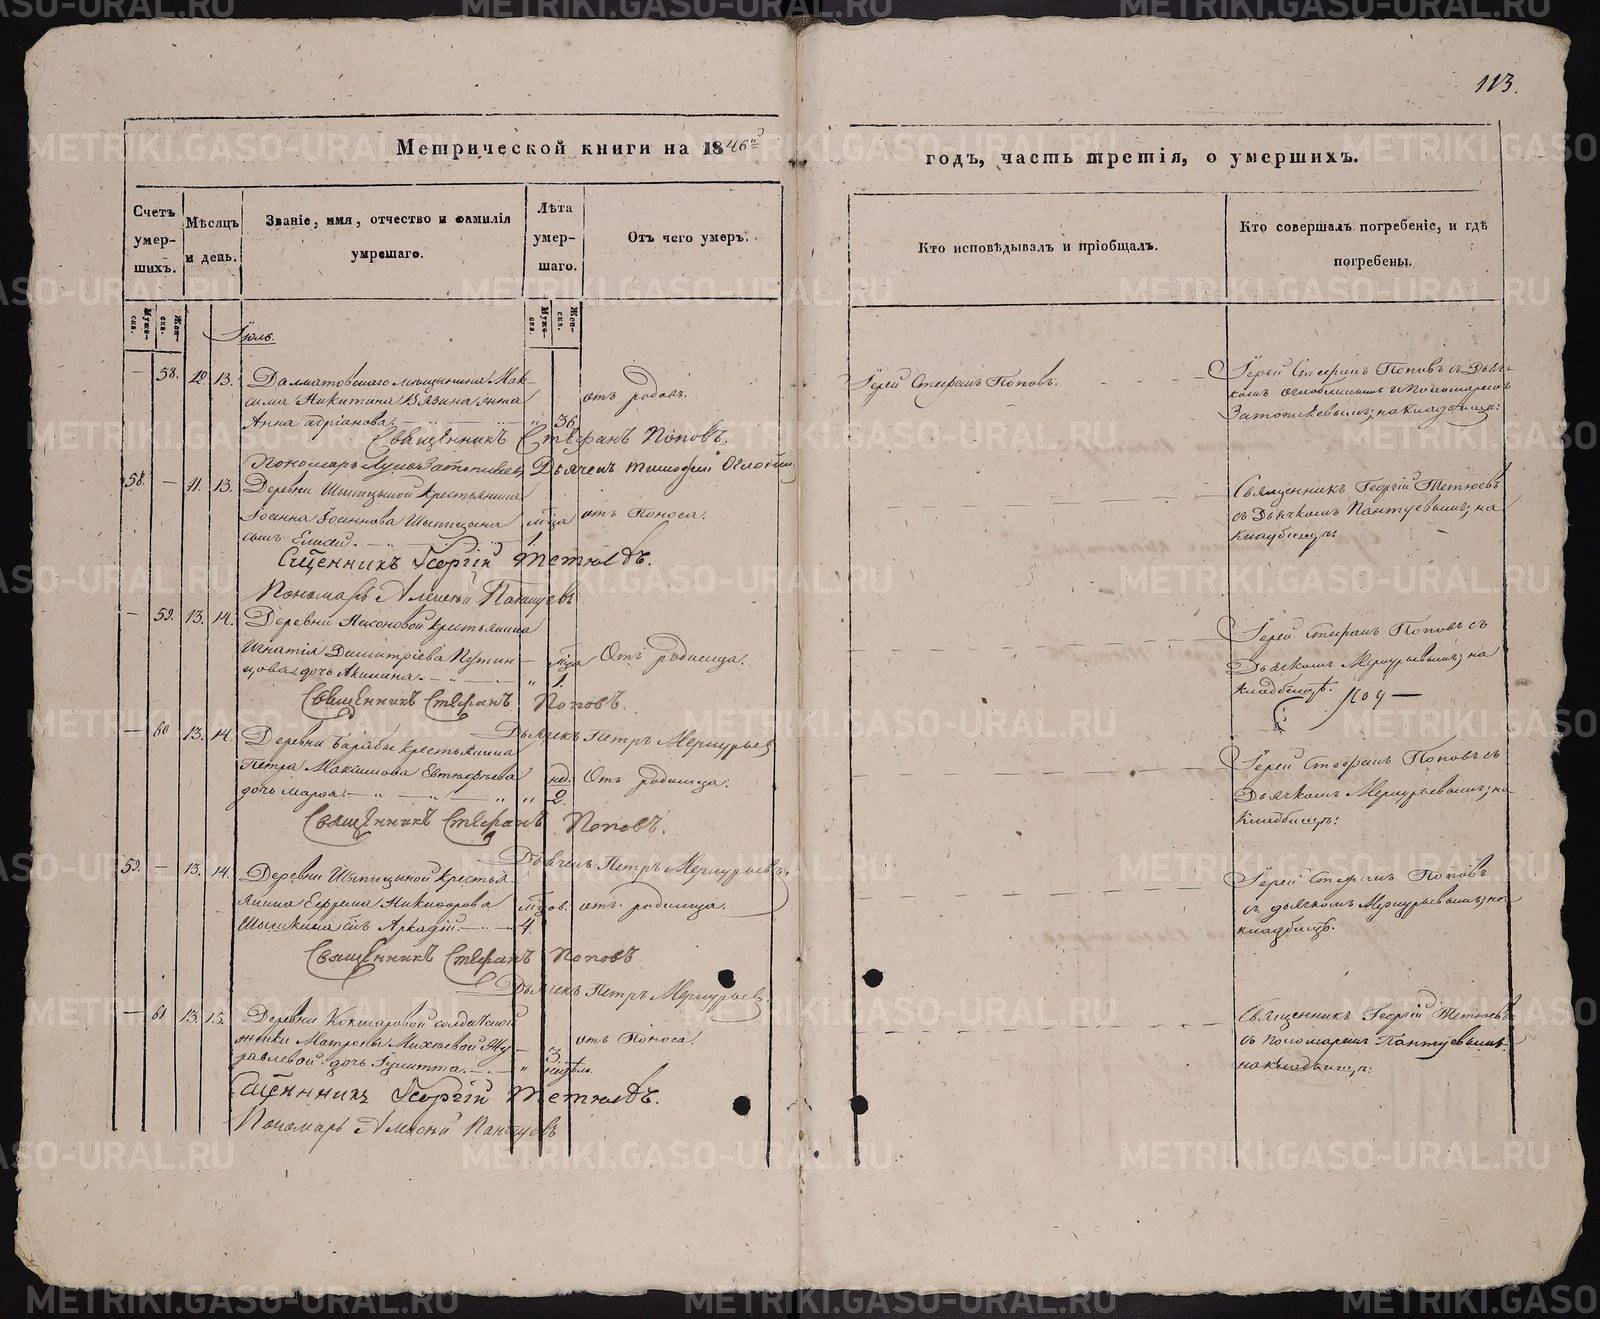 113.
Метрической книги на 1846й
годъ, часть третія, о умершихъ.
Счетъ умер-шихъ.
Мѣсяцъ и день.
Званіе, имя, отчество и фамилія умершаго.
Лѣта умер-шаго.
Отъ чего умеръ.
Кто исповѣдывалъ и пріобщалъ.
Кто совершалъ погребеніе, и гдѣ погребены.
Муже-ска.
Жен-ска.
Муже-ска.
Жен-ска.
Іюль.
— 58. 12. 13. Далматовскаго мѣщанина Мак-
сима Никитина Вязина жена отъ родовъ.
Анна Адріанова. 36.
Іерей Стефанъ Поповъ.
Іерей Стефанъ Поповъ съ Дьяч-
комъ Оглоблинымъ и Пономаремъ
на кладбищѣ.
Священникъ Стефанъ Поповъ.
Пономарь Дьячекъ Тимофей Оглоблин
58. — 11. 13. Деревни Шипицыной крестьянина
Іоанна Іоаннова Шипицына м-ца отъ Поноса.
сынъ Елисей. 1.
Священникъ Георгій Тетюевъ
съ Дьячкомъ Пантуевымъ, на
кладбищѣ
Сщенникъ Георгій Тетюевъ.
Пономарь Алексѣй Пантуевъ
— 59. 13. 14. Деревни крестьянина
Игнатія Димитріева м-ца Отъ родимца.
дочь Акилина. 1.
Іерей Стефанъ Поповъ съ
Дьячкомъ Меркурьевымъ, на
кладбищѣ.
Священникъ Стефанъ Поповъ.
Дьячекъ Петръ Меркурьев
— 60 13. 14 Деревни крестьянина
Петра Максимова нед. Отъ родимца.
дочь Марѳа. 2.
Іерей Стефанъ Поповъ съ
Дьячкомъ Меркурьевымъ, на
кладбищѣ.
Священникъ Стефанъ Поповъ.
Дьячекъ Петръ Меркурьевъ.
59. — 13. 14. Деревни Шипицыной крестья-
нина Ефрема Никифорова м-цов. отъ родимца.
сынъ Аркадій. 4.
Іерей Стефанъ Поповъ
съ дьячкомъ Меркурьевымъ, на
кладбищѣ.
Священникъ Стефанъ Поповъ
Дьячекъ Петръ Меркурьев
— 61 13. 15. Деревни Кокшаровой солдатской
жонки Матроны Михѣевой Жу- 3 отъ Поноса.
равлевой дочь Іулитта. недѣли.
Священникъ Георгій Тетюевъ
съ пономаремъ Пантуевымъ.
на кладбищѣ.
Сщенникъ Георгій Тетюевъ.
Пономарь Алексѣй Пантуевъ
METRIKI.GASO-URAL.RU